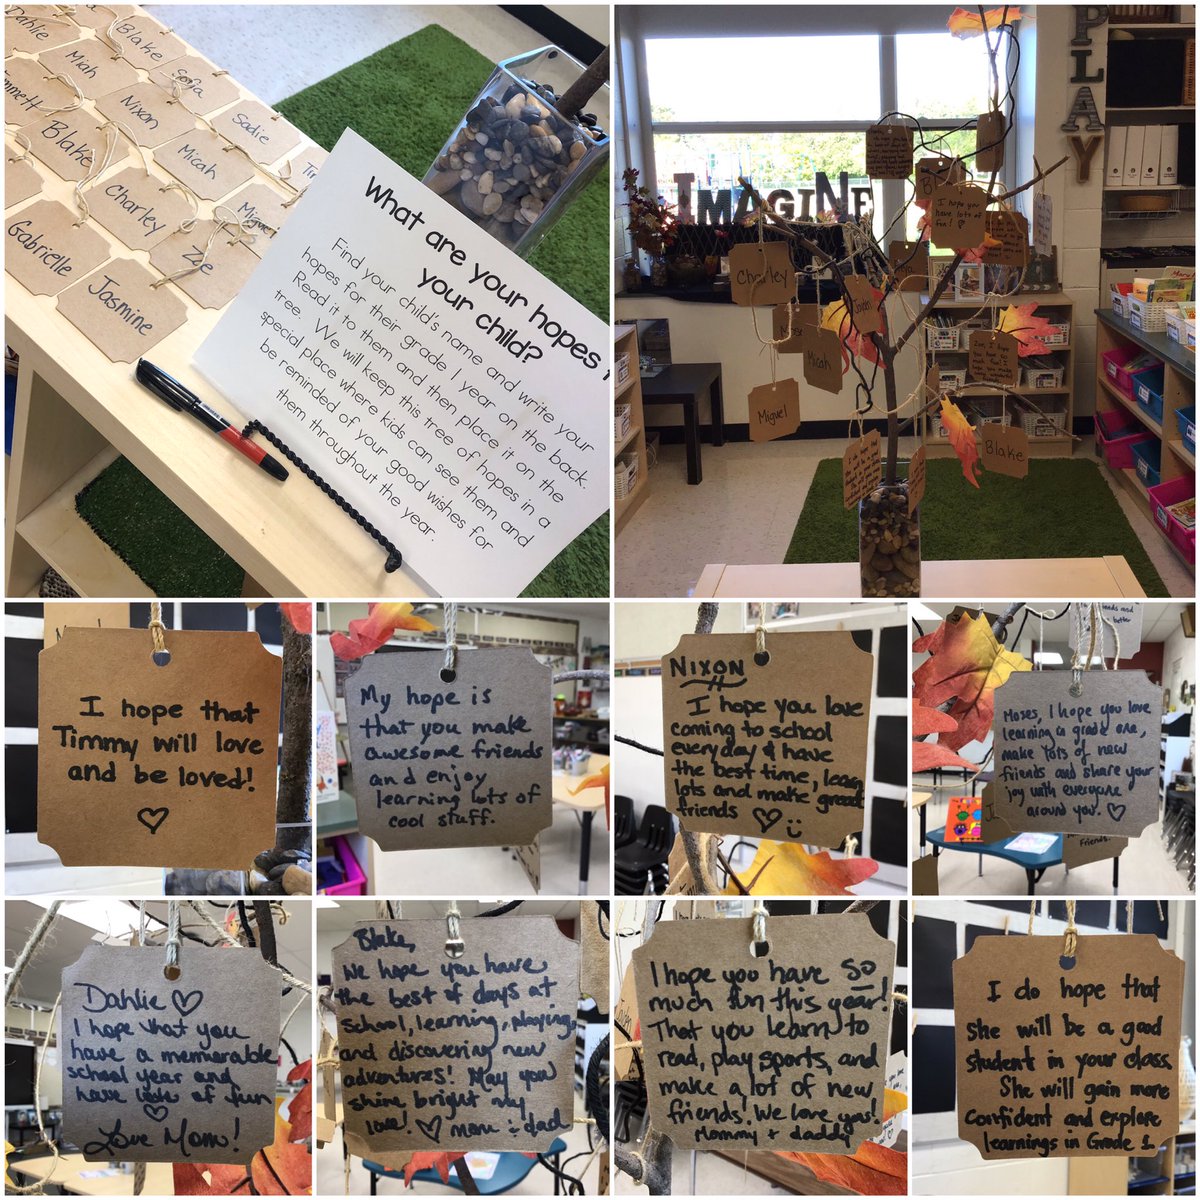 Dahlie
Blake
Miah
Sofia
Nixon
Sadie
Blake
Micah
Charley
Miguel
Gabrielle
Zoe
Jasmine
What are your hopes
your child?
Find your child's name and write your
hopes for their grade 1 year on the back.
Read it to them and then place it on the
tree. We will keep this tree of hopes in a
special place where kids can see them and
be reminded of your good wishes for
them throughout the year.
PLAY
IMAGINE
I hope you
have lots of
fun!
Charley
Micah
Miguel
Blake
I hope that
Timmy will love
and be loved!
My hope is
that you make
awesome friends
and enjoy
learning lots of
cool stuff.
NIXON
I hope you love
coming to school
everyday & have
the best time, learn
lots and make great
friends
Moses, I hope you love
learning in grade one,
make lots of new
friends and share your
joy with everyone
around you.
Friends.
Dahlie
I hope that you
have a memorable
school year and
have lots of fun
Love Mom!
Blake,
We hope you have
the best of days at
school, learning, playing,
and discovering new
adventures! May you
shine bright my
love! mom + dad
I hope you have so
much fun this year!
That you learn to
read, play sports, and
make a lot of new
friends. We love you!
Mommy + daddy
I do hope that
she will be a good
student in your class
She will gain more
confident and explore
learnings in Grade 1